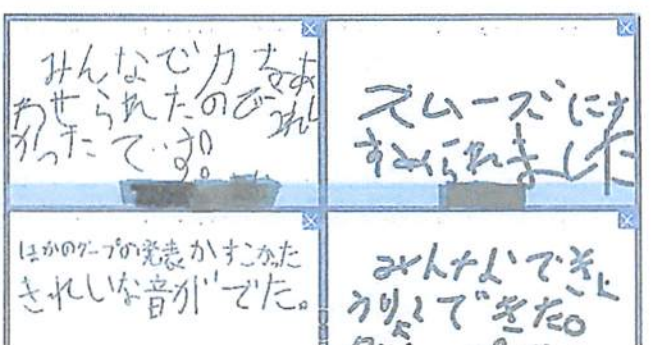 みんなで力をあ
わせられたのでうれし
かったです。
スムーズに
すめられました
ほかのグープの発表がすごかった
きれいな音がでた。
みんなできょ
うりょくできた。